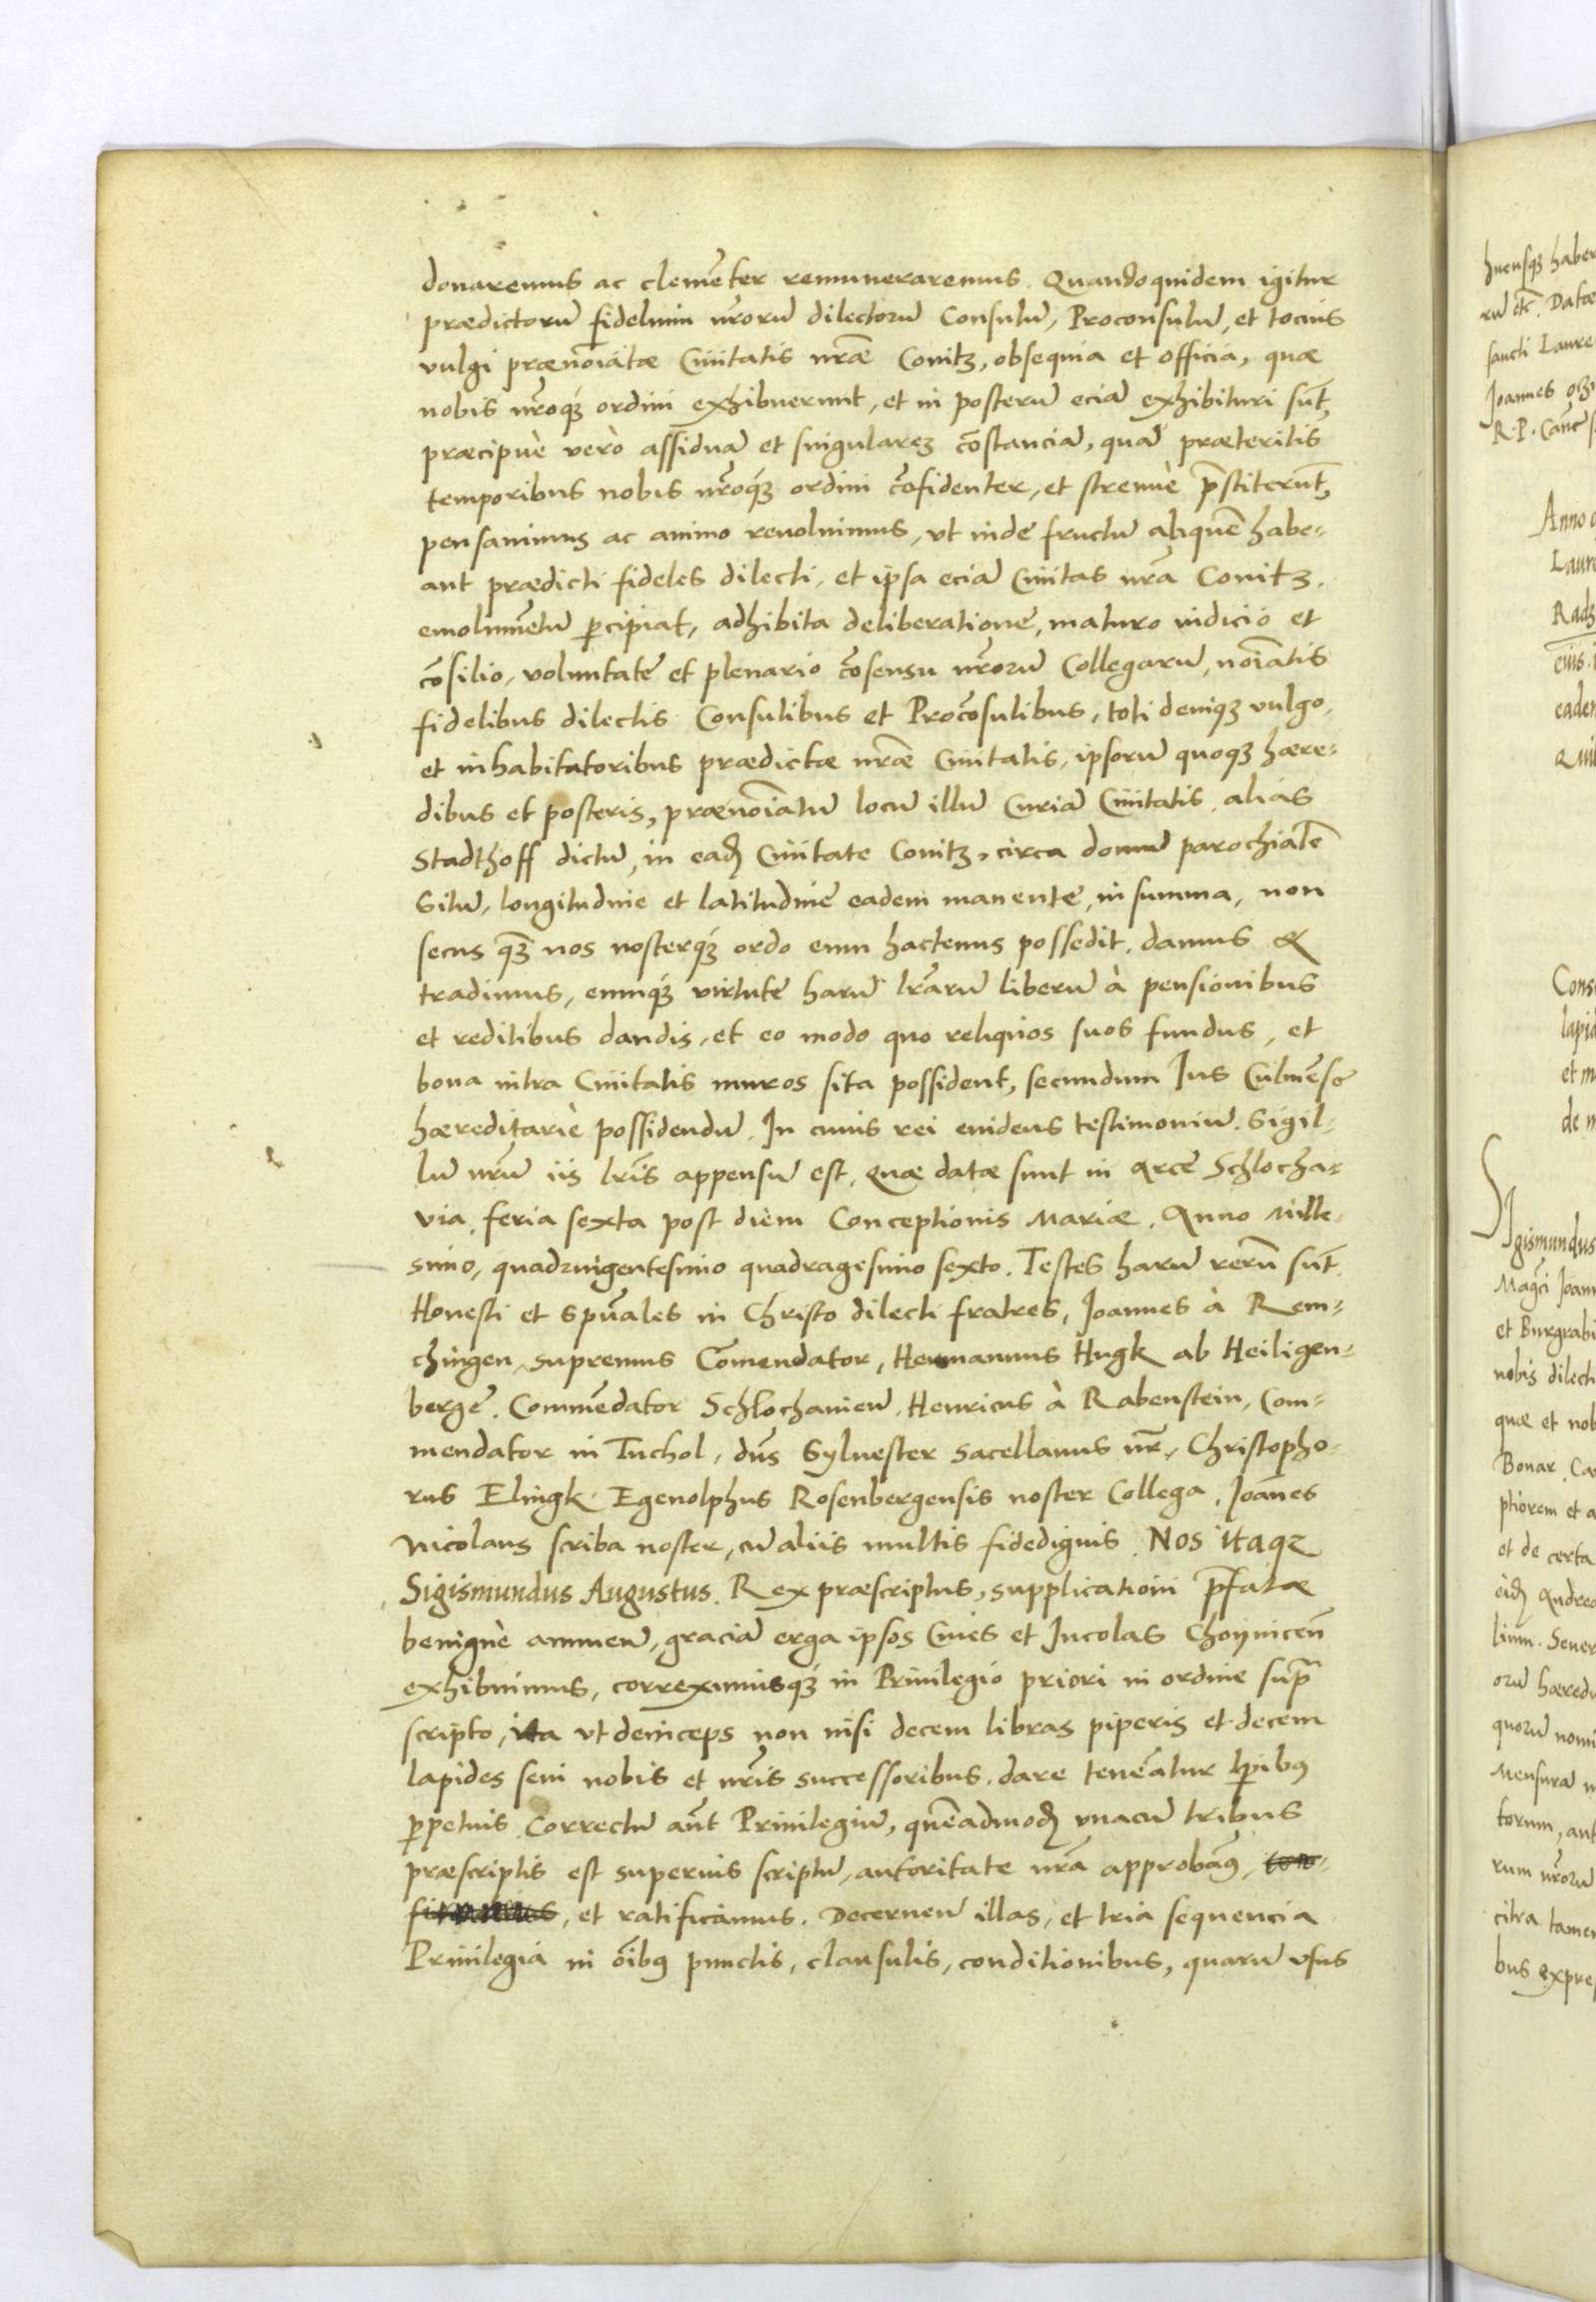 donaremus ac clemēter remuneraremus. Quandoquidem igitur
prædictorū fidelium nr̄orū dilectorū Consulū, Proconsulū, et tocius
vulgi prænoīatæ Ciuitatis nr̄æ Conitz, obsequia et officia, quæ
nobis nr̄oq́ꝫ ordini exhibuerunt, et in posterū eciā exhibituri sūt,
præcipuè verò assiduā et singulareꝫ cōstanciā, quā præteritis
temporibus nobis nr̄oq́ꝫ ordini cōfidenter, et strenuè p̄stiterūt,
pensauimus ac animo reuoluimus, vt inde fructū aliquē habe=
ant prædicti fideles dilecti, et ipsa eciā Ciuitas nr̄a Conitz.
emolumētū ꝑcipiat, adhibita deliberatione, maturo iudicio et
cōsilio, voluntate et plenario cōsensu nr̄orū Collegarū, noīatis
fidelibus dilectis Consulibus et Procōsulibus, toti deniqꝫ vulgo,
et inhabitatoribus prædictæ nr̄æ Ciuitatis, ipsorū quoqꝫ hære=
dibus et posteris, prænoīatū locū illū Curiā Ciuitatis, aliàs
Stadthoff dictū, in eadꝫ Ciuitate Conitz, circa domū parochialē
sitū, longitudine et latitudine eadem manente, in summa, non
secus qꝫ̄ nos nosterq́ꝫ ordo eum hactenus possedit, damus &
tradimus, eumq́ꝫ virtute harū lr̄arū liberū à pensionibus
et reditibus dandis, et eo modo quo reliquos suos fundus, et
bona intra Ciuitatis muros sita possident, secundum Ius Culmēse
hæreditariè possidendū. In cuius rei euidens testimoniū. Sigil=
lū nr̄ū iis lr̄is appensū est, Quæ datæ sunt in Arce Schlocha=
via, feria sexta post diem Conceptionis Mariæ. Anno Mille=
simo, quadringentesimo quadragesimo sexto. Testes harū rerū sūt.
Honesti et Spūales in Christo dilecti fratres, Joannes à Rem=
chingen, supremus Com̄endator, Hermannus Hugk ab Heiligen=
berge, Commēdator Schlochauieñ, Henricus à Rabenstein, Com=
mendator in Tuchol, dn̄s Syluester sacellanus nr̄, Christopho=
rus Elingk, Egenolphus Rosenbergensis noster Collega, Joānes
Nicolaus scriba noster, cū aliis multis fidedignis. Nos itaqꝫ
Sigismundus Augustus. Rex præscriptus, supplicationi p̄fatæ
benignè annueñ, graciā erga ipsos Ciues et Incolas Choynicen̄
exhibuimus, correximusq́ꝫ in Priuilegio priori in ordine supᵃ
scripto, ita vt deinceps non nisi decem libras piperis et decem
lapides seui nobis et nr̄is successoribus, dare teneātur tꝑibꝰ
ꝑpetuis. Correctū aūt Priuilegiū, quēadmodꝫ vnacū tribus
præscriptis est superius scriptū, autoritate nr̄a approbāꝰ, con=
firmamus, et ratificamus. Decerneñ illas, et tria sequencia
Priuilegia in oībꝰ punctis, clausulis, conditionibus, quarū vsus
hucusqꝫ haber
rū etc̄. Datæ
sancti Laure
Joannes
R. P. Canc̄
Anno
Laure
Radz
eius.
eadem
Qui
Cons
lapid
et m
de m
Sigismundus
Magci Joan
et Burgrabi
nobis dilecti
quæ et nob
Bonar, Ca
ptiorem et a
et de certa
eidꝫ Andrea
lium. Seuer
orū hæredu
quorū nomi
Mensura
torum, aut
rum nr̄orū
citra tamen
bus expre